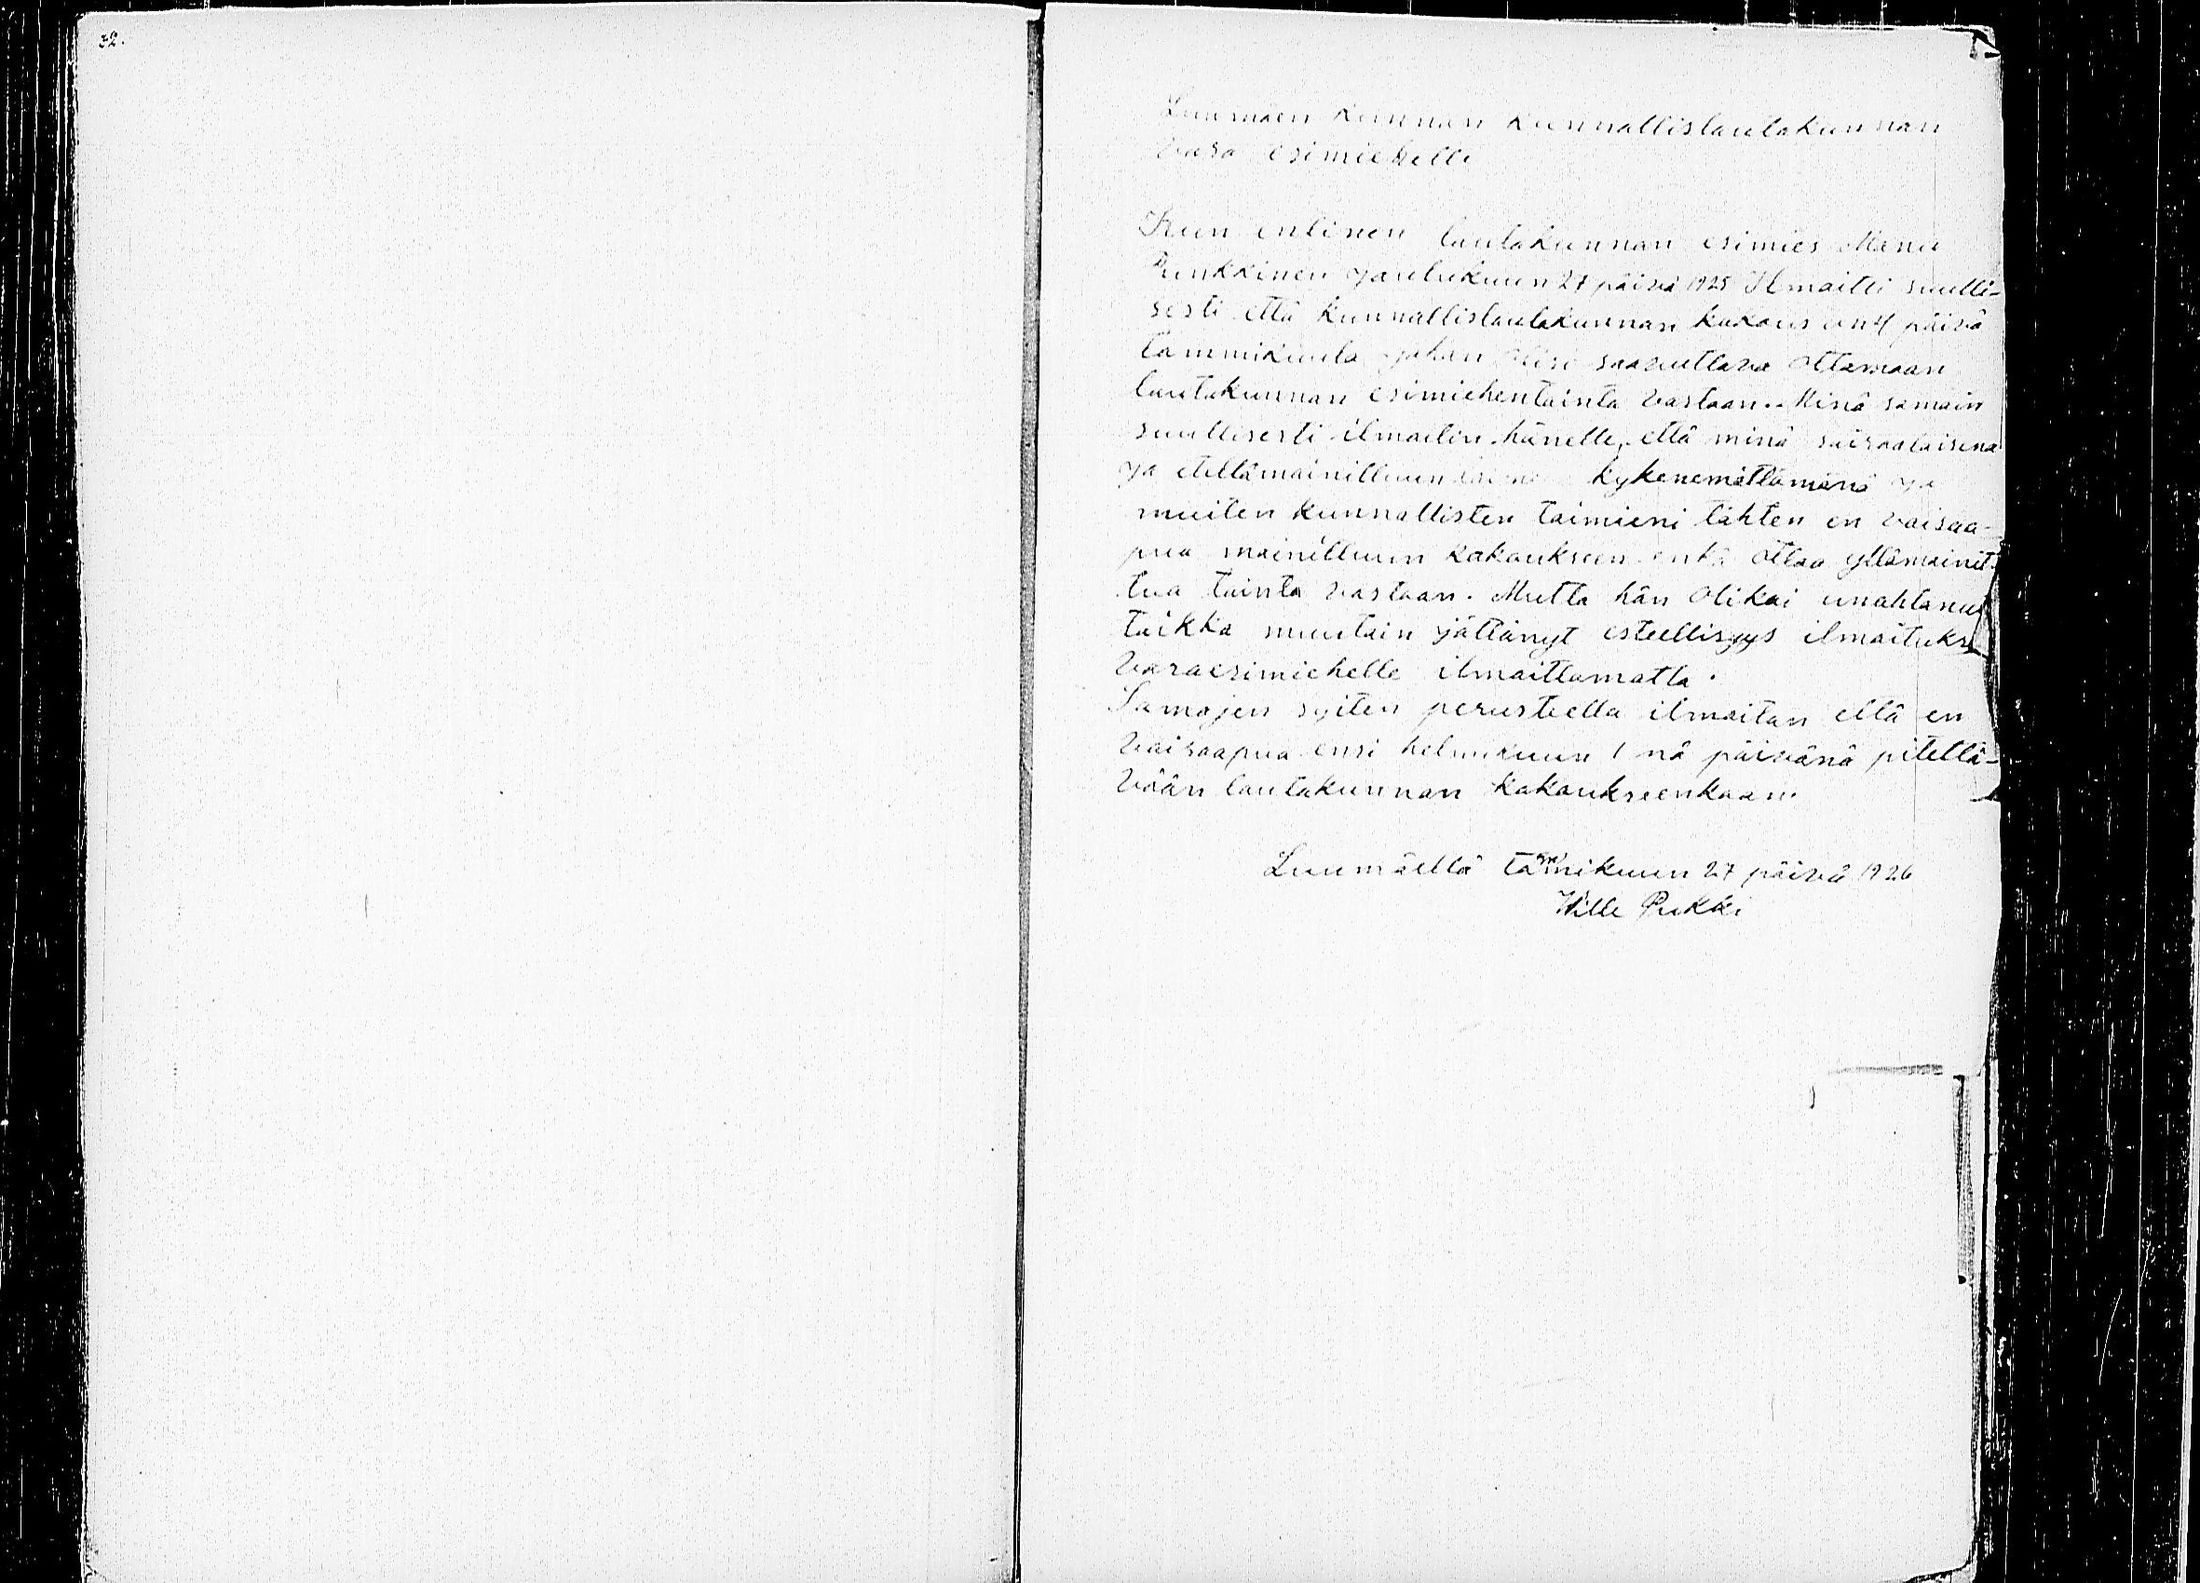 32.
Luumäen kunnan kunnallislautakunnan
vara esimiehelle
Kun entinen lautakunnan esimies Manu
Punkkinen joulukuun 27 päivä 1925 Ilmaitti suulli-
sesti että kunnallislautakunnan kokous on 4 päivä
tammikuuta johon olisi saavuttava ottamaan
lautakunnan esimiehentointa vastaan. Minä samain
suullisesti ilmaitin hänelle, että minä sairaalaisena
ja itellämainittuun toime kykenemättömänä ja
muiten kunnallisten toimieni tähten en voisaa-
pua mainittuun kokoukseen enkä ottaa yllämainit-
tua tointa vastaan. Mutta hän olikai unahtanut
taikka muutoin jättänyt esteellisyys ilmaituksen
varaesimiehelle ilmaittamatta.
Samojen syiten perusteella ilmaitan että en
voisaapua ensi helmikuun 1 nä päivänä pitettä-
vään lautakunnan kokoukseenkaan.
Luumäellä tammikuun 27 päivä 1926
Wille Pukki